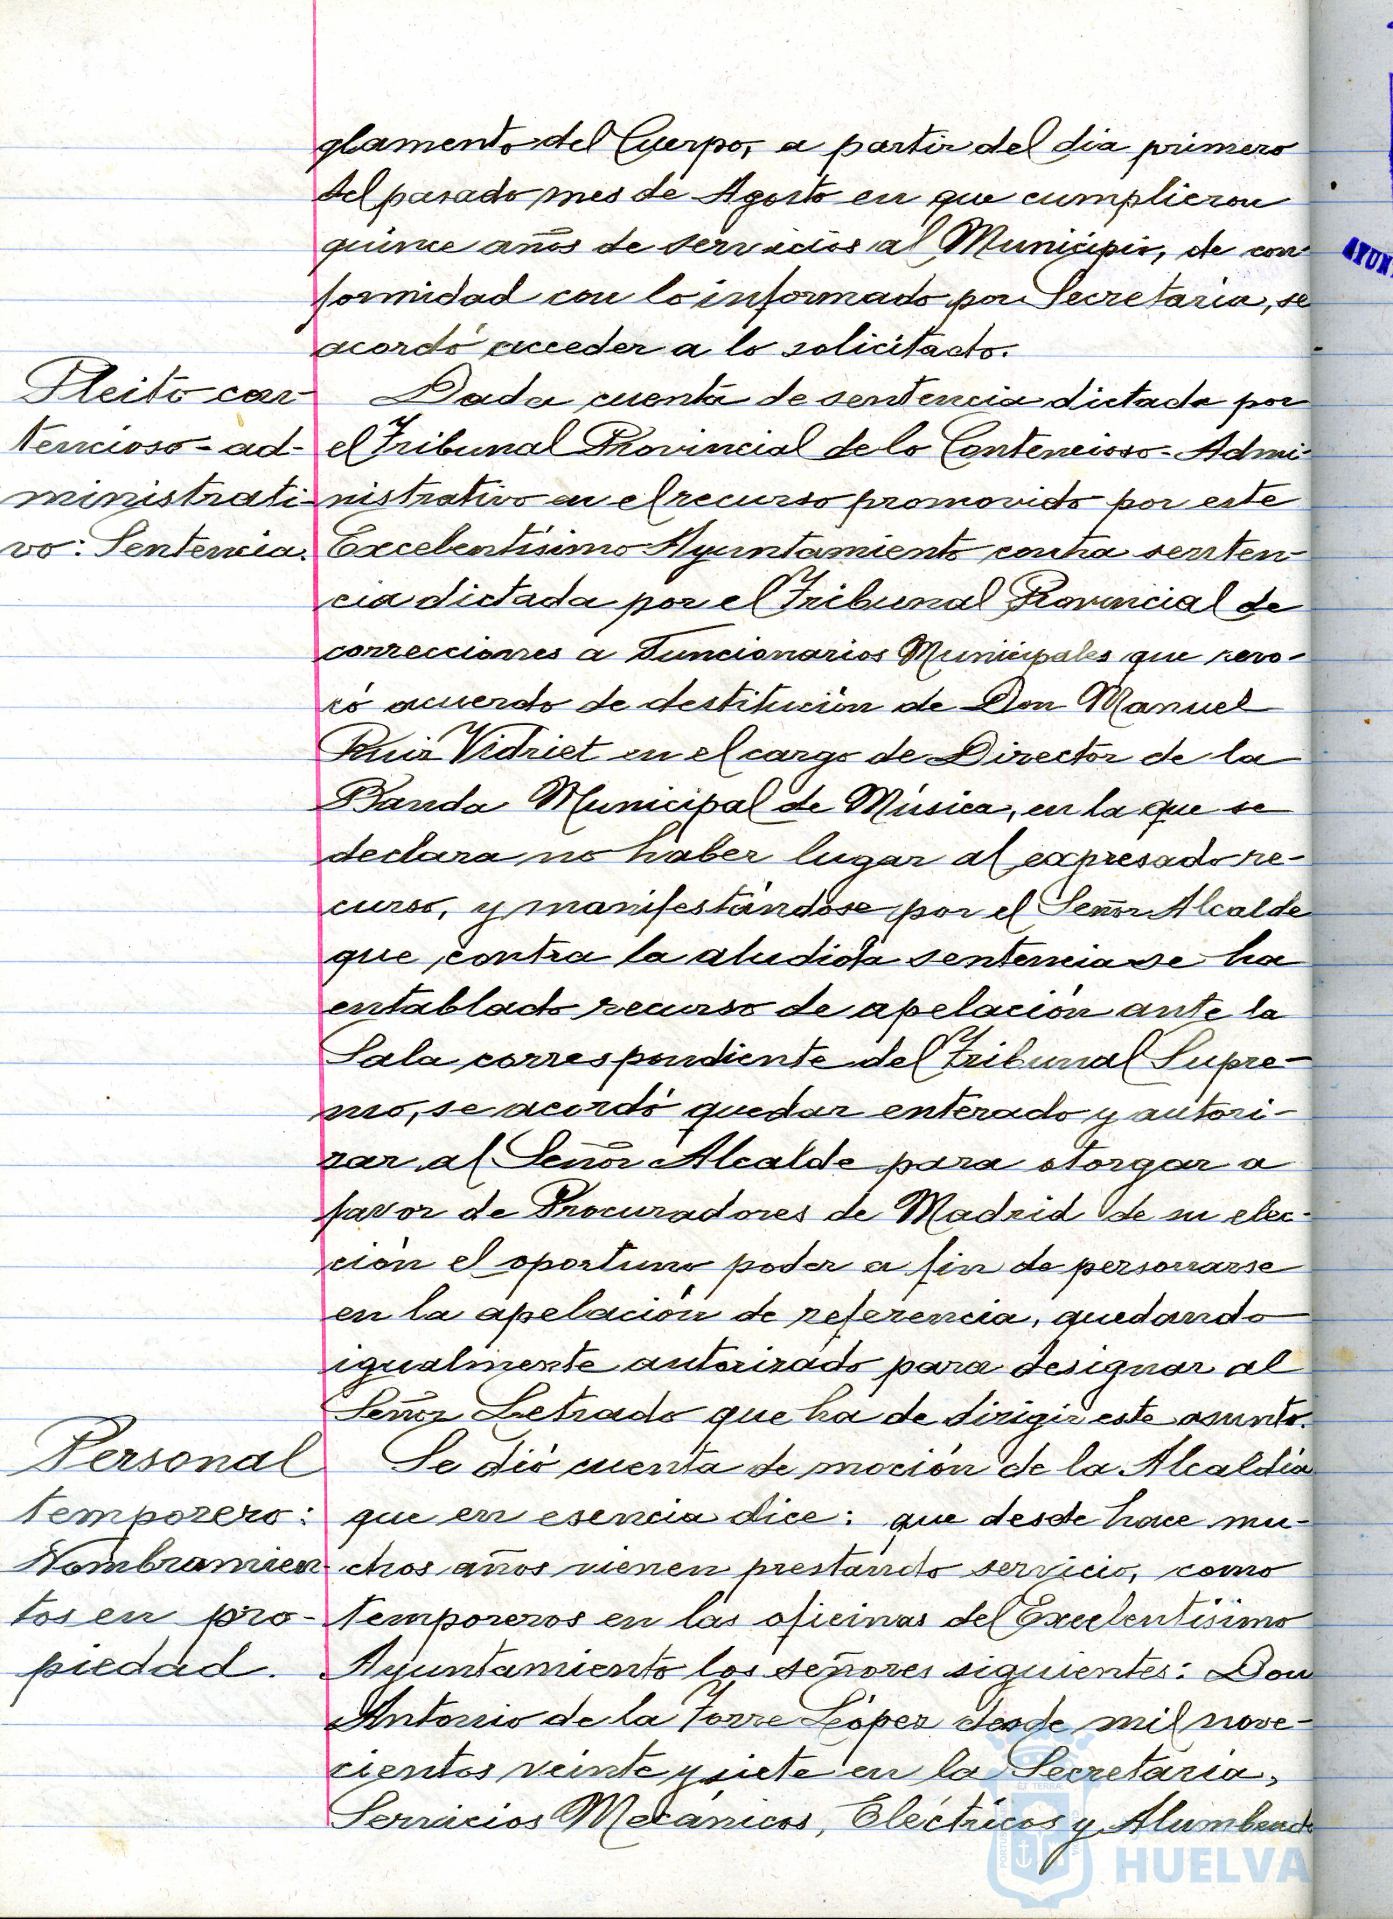 glamento del Cuerpo, a partir del dia primero
del pasado mes de Agosto en que cumplieron
quince años de servicios al Municipio, de con-
formidad con lo informado por Secretaria, se
acordó acceder a lo solicitado.
Pleito con-
tencioso-ad-
ministrati-
vo: Sentencia.
Dada cuenta de sentencia dictada por
el Tribunal Provincial de lo Contencioso-Admi-
nistrativo en el recurso promovido por este
Excelentísimo Ayuntamiento contra senten-
cia dictada por el Tribunal Provincial de
correcciones a Funcionarios Municipales que revo-
có acuerdo de destitución de Don Manuel
Ruiz Vidriet en el cargo de Director de la
Banda Municipal de Música, en la que se
declara no haber lugar al expresado re-
curso, y manifestándose por el Señor Alcalde
que contra la aludida sentencia se ha
entablado recurso de apelación ante la
Sala correspondiente del Tribunal Supre-
mo, se acordó quedar enterado y autori-
zar al Señor Alcalde para otorgar a
favor de Procuradores de Madrid de su elec-
ción el oportuno poder a fin de personarse
en la apelación de referencia, quedando
igualmente autorizado para designar al
Señor Letrado que ha de dirigir este asunto.
Personal
temporero:
Nombramien-
tos en pro-
piedad.
Se dió cuenta de moción de la Alcaldía
que en esencia dice: que desde hace mu-
chos años vienen prestando servicio, como
temporeros en las oficinas del Excelentísimo
Ayuntamiento los señores siguientes: Don
Antonio de la Torre López desde mil nove-
cientos veinte y siete en la Secretaría,
Servicios Mecánicos, Eléctricos y Alumbrado
HUELVA
AYUN